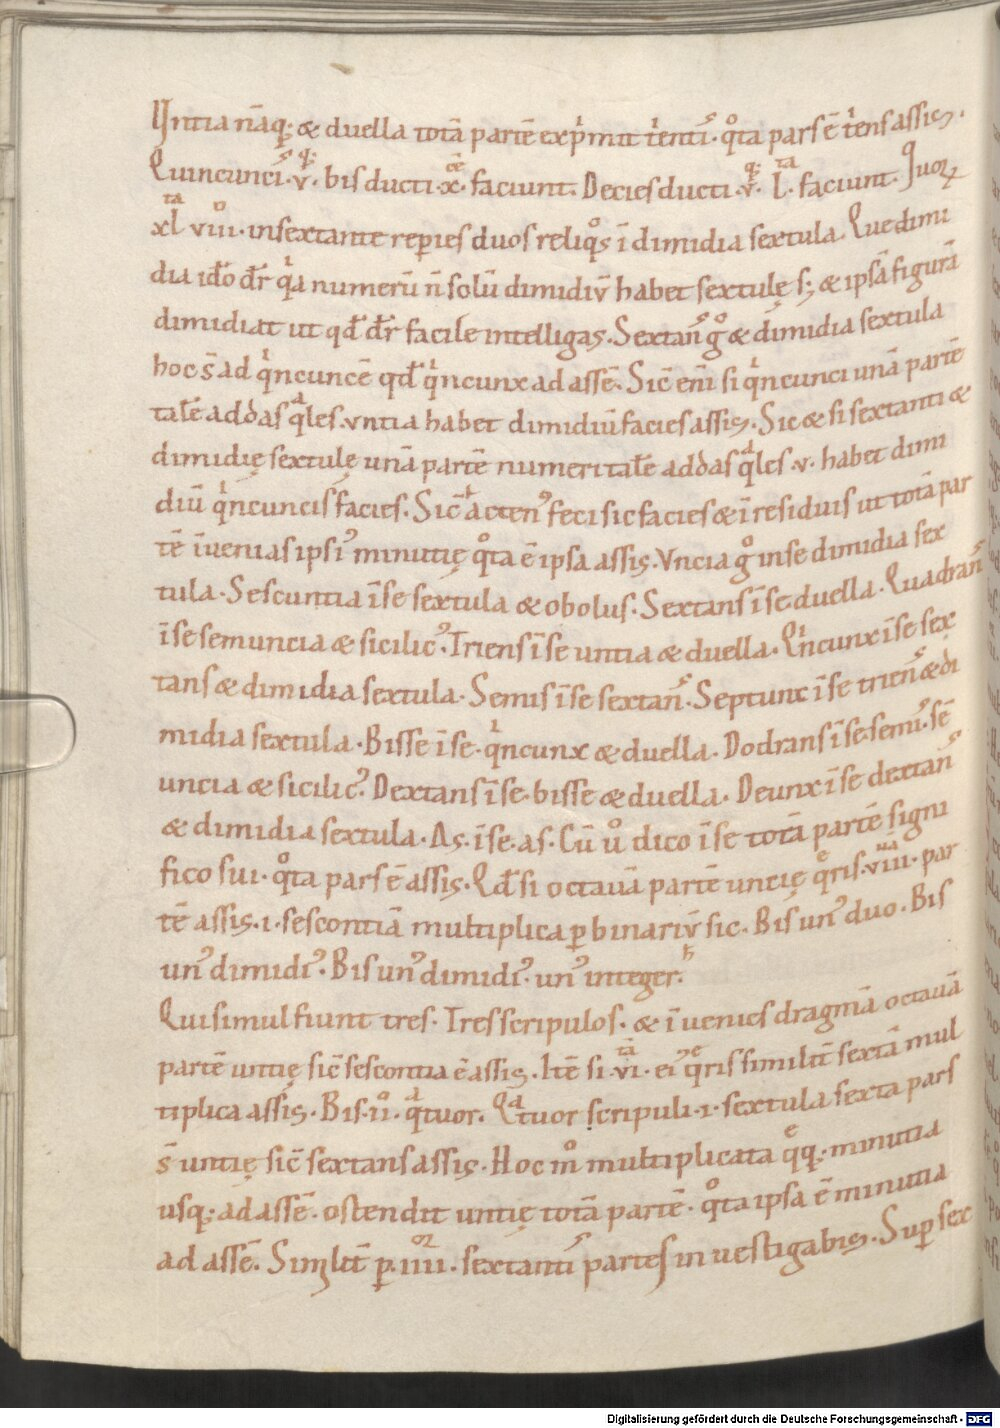 Untia nāq; & duella totā partē exp̄mit t̄entis· q̊ta pars ē t̄ens assis·
Quincunci·v·bis ducti·x·faciunt. Decies ducti·v·L·faciunt. Quoꝝ
xl viii·in sextante reperies duos reliq̊s ī dimidia sextula. Que dimi
dia idō dr̄ q̄a numerū n̄ solū dimidiū habet sextulę s; & ipsā figurā
dimidiat ut qd̄ dr̄ facile intelligas. Sextans g̊ & dimidia sextula
hoc s̄ ad q̄ncuncē qd̄ q̄ncunx ad assē. Sic̄ eni si q̄ncunci unā partē
talē addas q̄les. untia habet dimidiū facies assis. Sic & si sextanti &
dimidię sextulę unā partē numeri talē addas q̄les·v·habet dimi
diū q̄ncuncis facies. Sic̄ acten᾽ feci sic facies & ī residuis ut totā par
tē īvenias ipsi᾽ minutię q̊ta ē ipsa assis. Uncia g̊ in se dimidia sex
tula. Sescuntia ī se sextula & obolus. Sextans ī se duella. Quadrans
ī se semuncia & sicilic᾽. Triens ī se untia & duella. Qincunx ī se sex
tans & dimidia sextula. Semis ī se sextans. Septunc ī se triens & di
midia sextula. Bisse ī se·q̄ncunx & duella. Dodrans ī se·semis᾽ sē
uncia & sicilic᾽. Dextans ī se·bisse & duella. Deunx ī se dextans
& dimidia sextula. As·ī se·as. Cū ů dico ī se totā partē signi
fico sui·q̊ta pars ē assis. Qd̄ si octavā partē untię q̄ris·viii·par
tē assis·i·sescontiā multiplica p̱ binariū sic. Bis un᾽ duo. Bis
un᾽ dimidi᾽. Bis un᾽ dimidi᾽·un᾽ integer.
Qui simul fiunt tres. Tres scripulos·& īvenies dragmā octavā
partē untię sic̄ sescontia ē assis. Itē si·vi·ei᾽ q̄ris similit̄ sextā mul
tiplica assis. Bis·ii·q̄tuor. Qtuor scripuli·i·sextula sexta pars
s̄ untię sic̄ sextans assis. Hoc m̊ multiplicata q̄q; minutia
usq; ad assē·ostendit untię totā partē·q̊ta ipsa ē minutia
ad assē. Similit̄ p̱·iiii·sextantis partes investigabis. Sup̱ sex
Digitalisierung gefördert durch die Deutsche Forschungsgemeinschaft - DFG